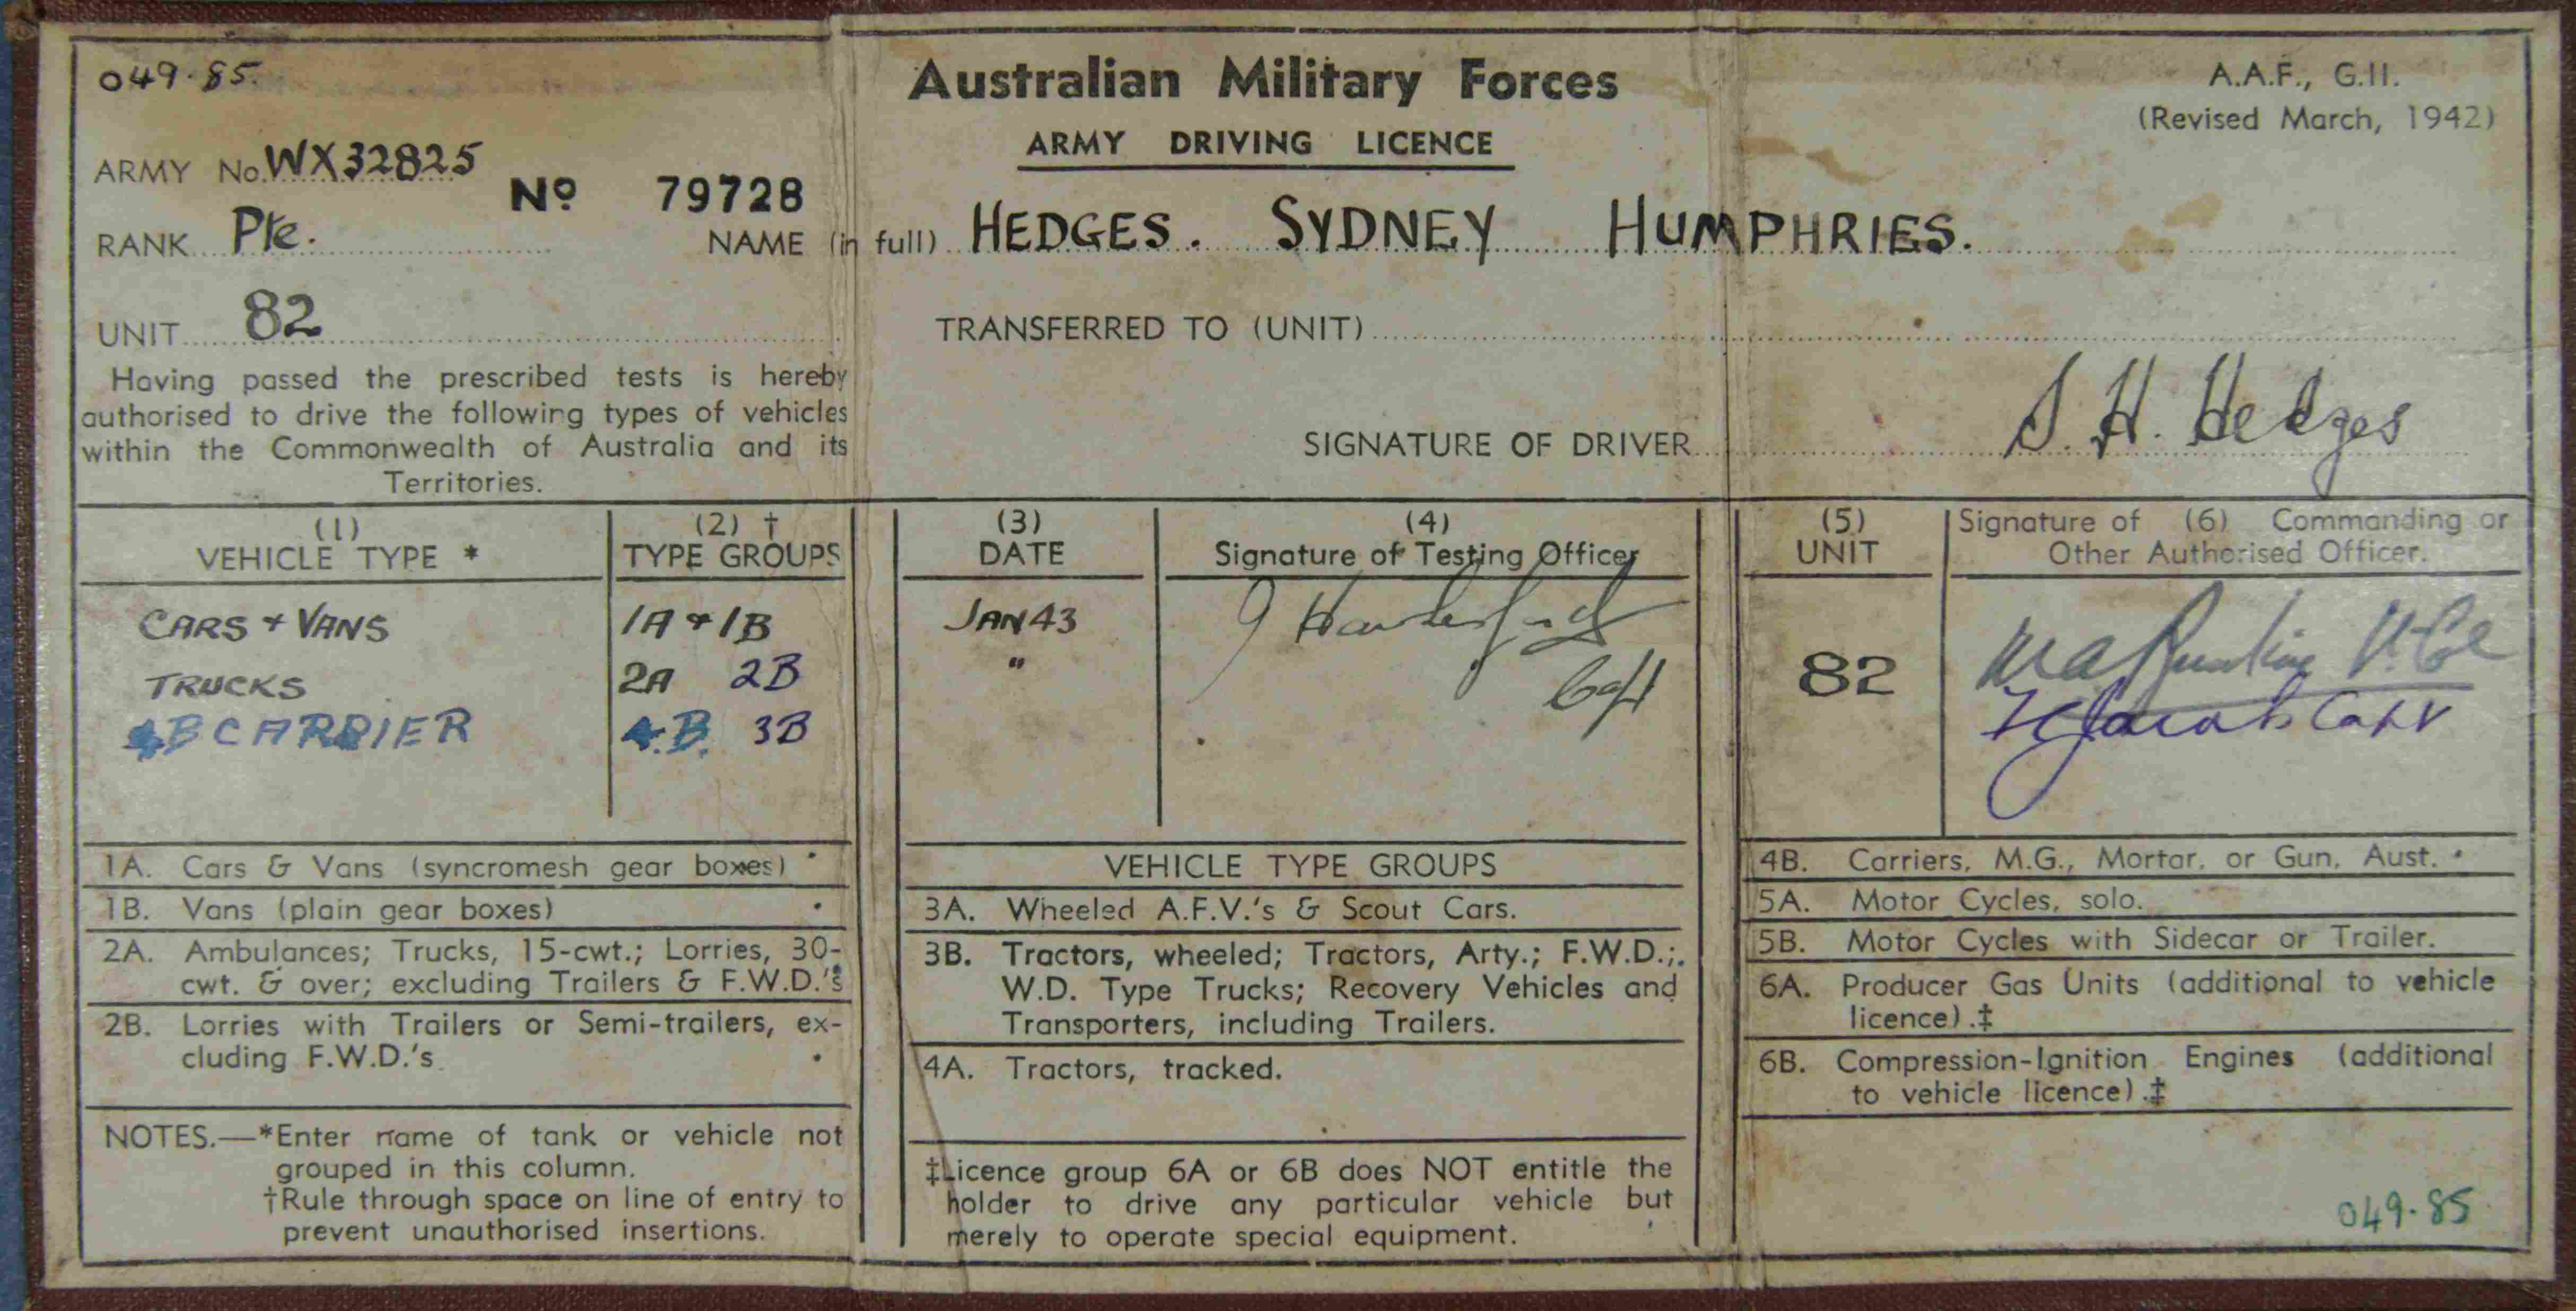 049.85.
Australian Military Forces
A.A.F., G.11.
(Revised March, 1942)
ARMY DRIVING LICENCE
ARMY No. WX32825
No 79728
RANK Pte.
NAME (in full) HEDGES. SYDNEY HUMPHRIES.
UNIT 82
TRANSFERRED TO (UNIT)
Having passed the prescribed tests is hereby
authorised to drive the following types of vehicles
within the Commonwealth of Australia and its
Territories.
SIGNATURE OF DRIVER S. H. Hedges
(1)
VEHICLE TYPE *
(2) †
TYPE GROUPS
(3)
DATE
(4)
Signature of Testing Officer
(5)
UNIT
Signature of (6) Commanding or
Other Authorised Officer.
CARS + VANS 1A + 1B JAN 43
TRUCKS 2A 2B "
82
4B CARRIER 4.B. 3B
Capt
1A. Cars & Vans (syncromesh gear boxes)
1B. Vans (plain gear boxes)
2A. Ambulances; Trucks, 15-cwt.; Lorries, 30-
cwt. & over; excluding Trailers & F.W.D.'s
2B. Lorries with Trailers or Semi-trailers, ex-
cluding F.W.D.'s
NOTES.—*Enter name of tank or vehicle not
grouped in this column.
†Rule through space on line of entry to
prevent unauthorised insertions.
VEHICLE TYPE GROUPS
3A. Wheeled A.F.V.'s & Scout Cars.
3B. Tractors, wheeled; Tractors, Arty.; F.W.D.;
W.D. Type Trucks; Recovery Vehicles and
Transporters, including Trailers.
4A. Tractors, tracked.
‡Licence group 6A or 6B does NOT entitle the
holder to drive any particular vehicle but
merely to operate special equipment.
4B. Carriers, M.G., Mortar, or Gun, Aust.
5A. Motor Cycles, solo.
5B. Motor Cycles with Sidecar or Trailer.
6A. Producer Gas Units (additional to vehicle
licence).‡
6B. Compression-Ignition Engines (additional
to vehicle licence).‡
049.85